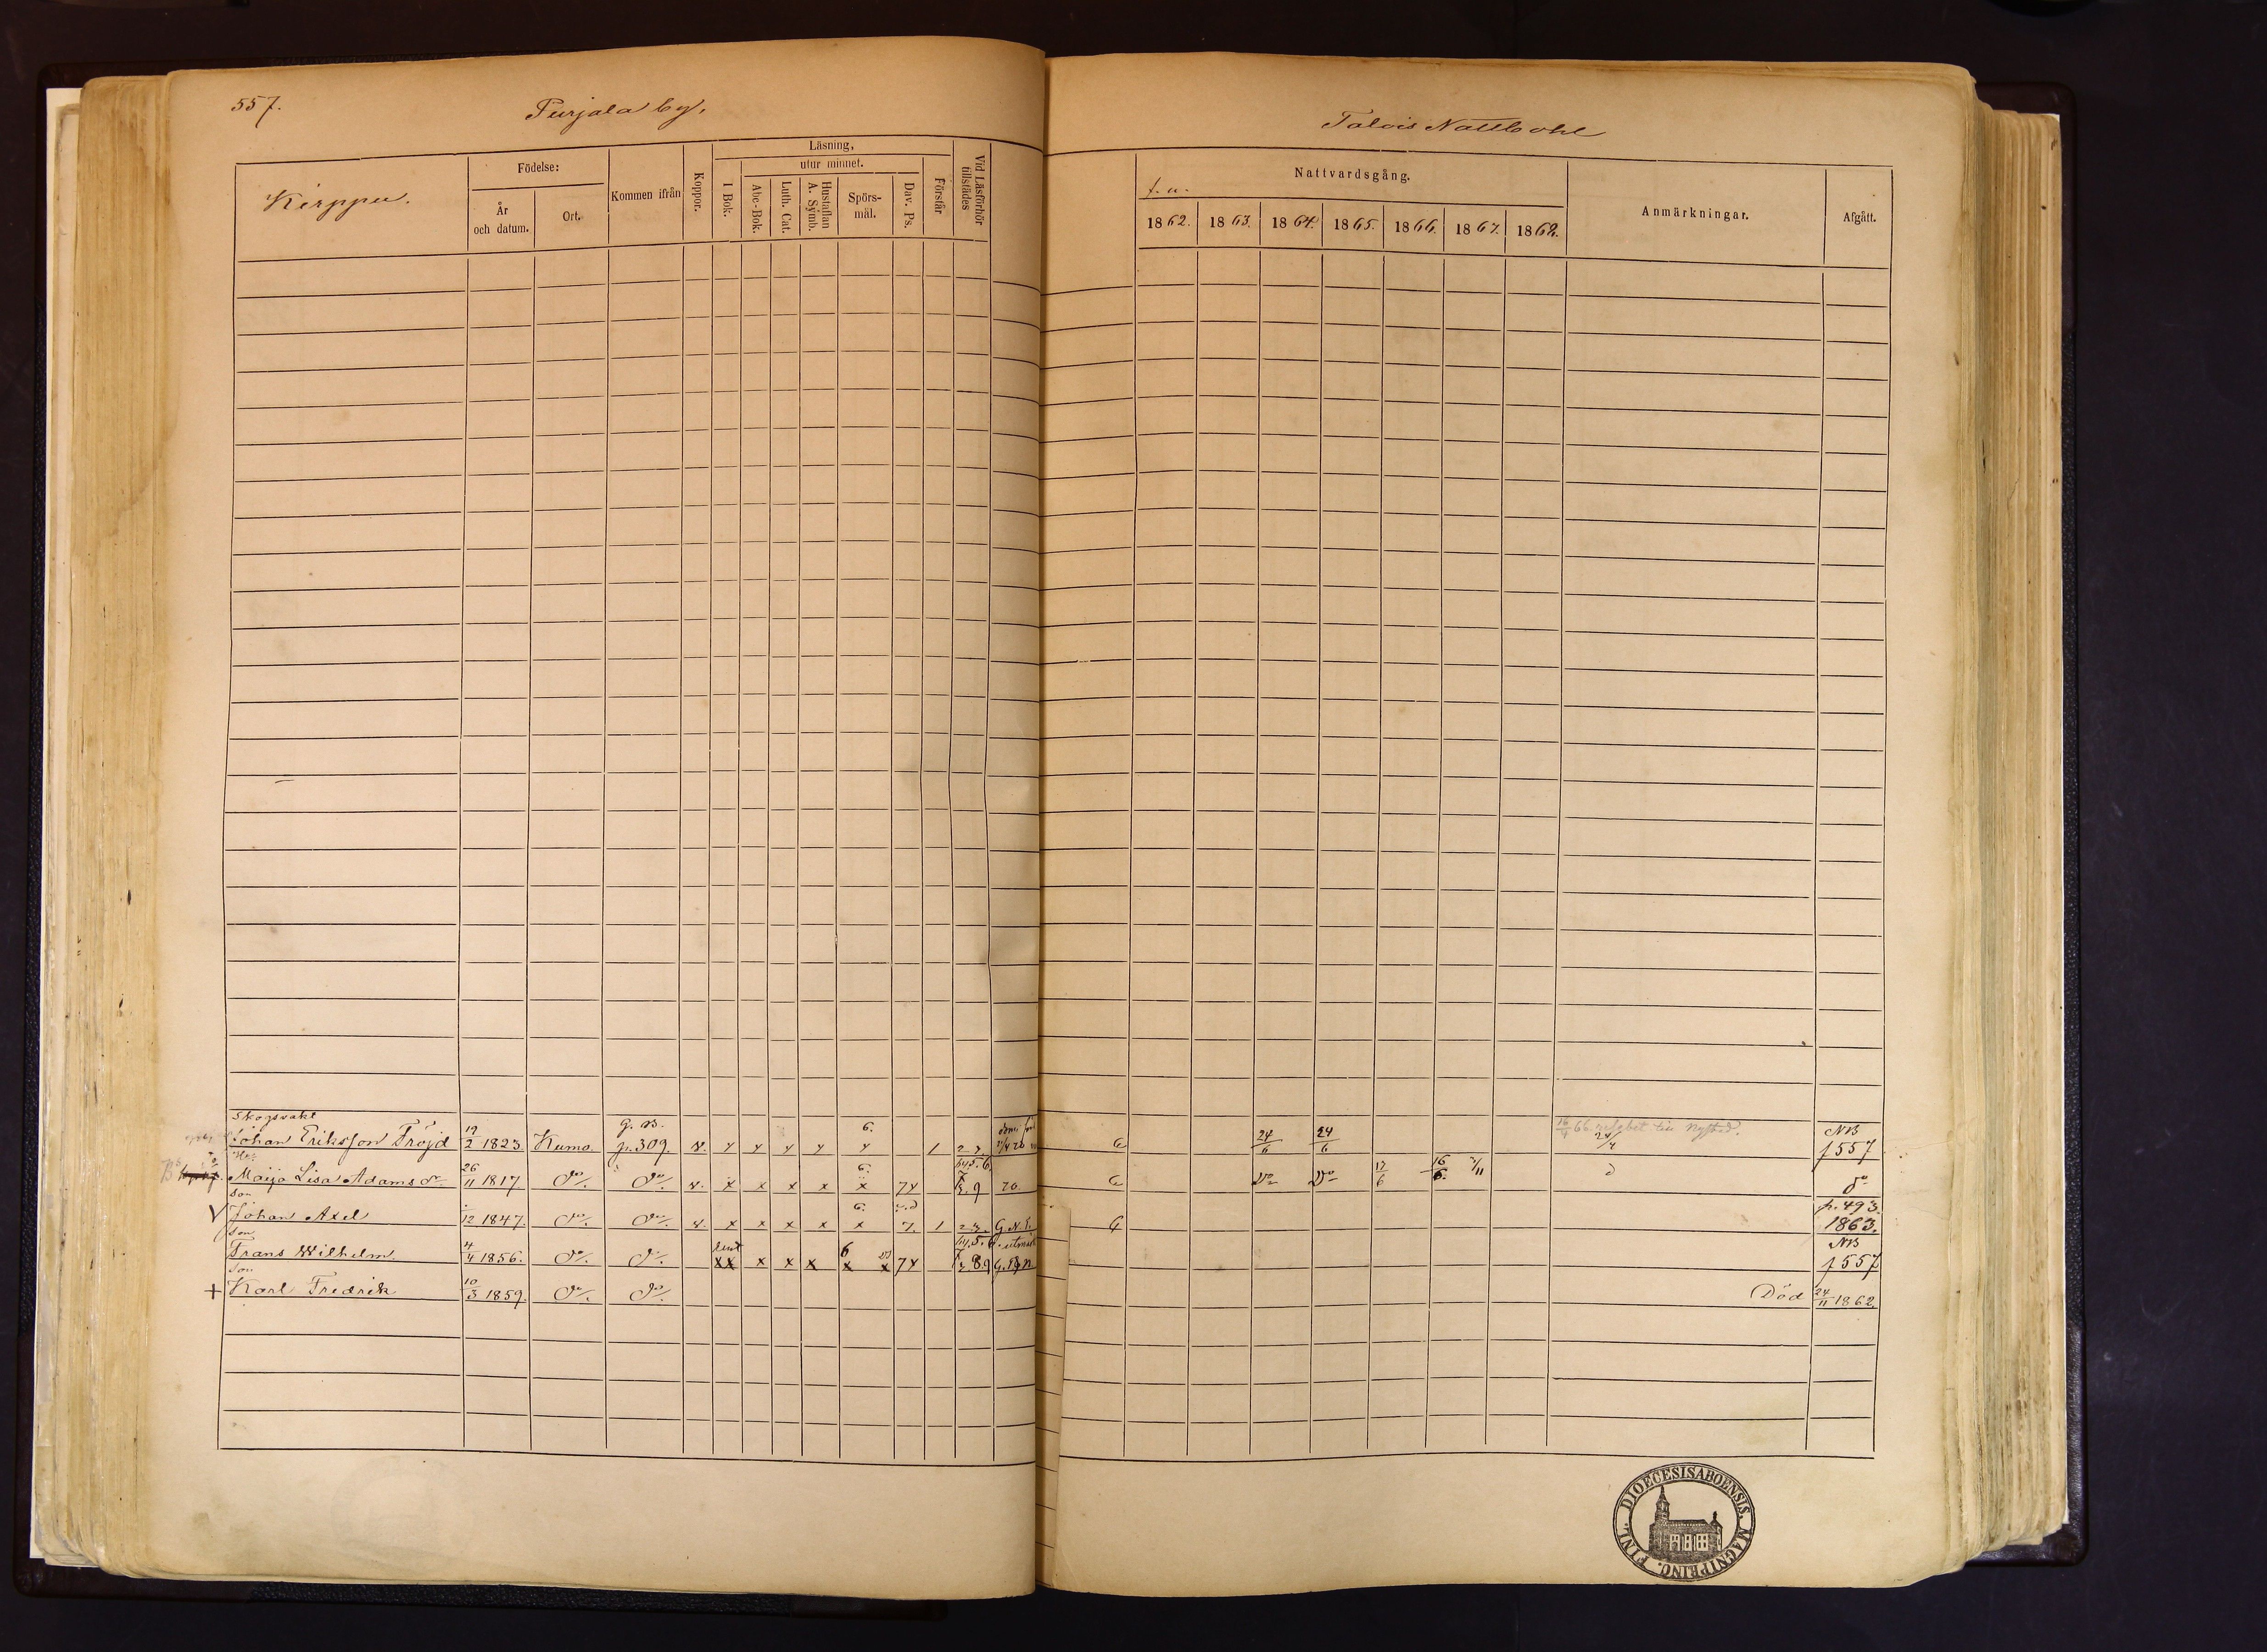 557.
Purjala by.
Talois Nattbohl
Kirppu.
Födelse:
År och datum.
Ort.
Kommen ifrån
Koppor.
Läsning,
I Bok.
utur minnet.
Abc-Bok.
Luth. Cat.
Hustaflan A. Symb.
Spörs-mål.
Dav. Ps.
Förstår
Vid Läsförhör tillstädes
f. u.
Nattvardsgång.
1862. 1863. 1864. 1865. 1866. 1867. 1868.
Anmärkningar.
Afgått.
Skogsvakt g. B. 6.
Johan Eriksson Fröjd 19/2 1823. Kumo p. 309. v. y y y y y 1 2.3. G 24/6 24/6 NB p 557
Maija Lisa Adamsdr 26/11 1817. do do v. x x x x x 7y G do do 17/6 16/6 do
Son
Johan Axel 12 1847. do do v. x x x x x 7. 1 2.3. G.N.E. G p. 493. 1863.
Son
Frans Wilhelm 4/4 1856. do do xx x x x x x 7y NB p 557
Son
+ Karl Fredrik 10/3 1859. do do Död 24/11 1862.
DIOECESIS ABOENSIS. MAGNI PRINC. FINL.